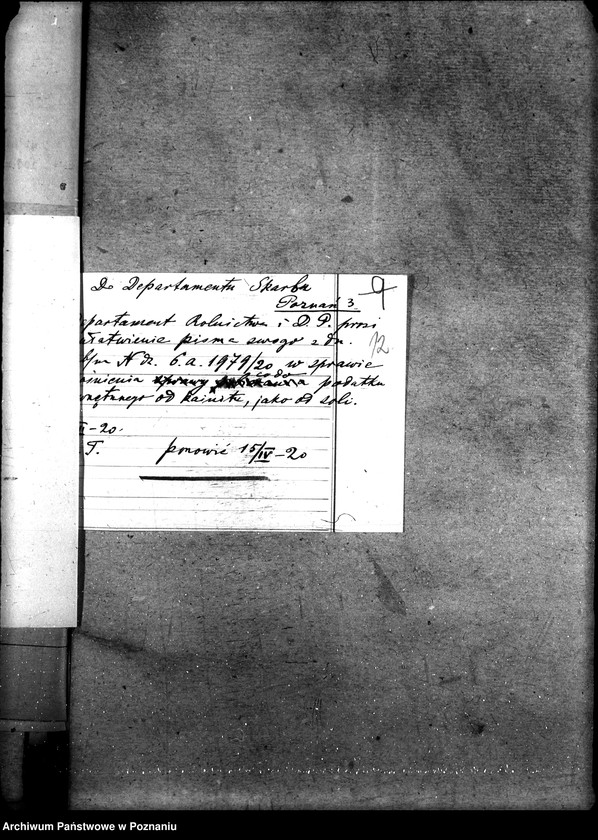 Do Departamentu Skarbu
Poznań 3
9
epartament Rolnictwa i D. P. prosi
ałatwienie pisma swego z dn.
12
N dz. 6.a. 1979/20 w sprawie
śnienia sprawy podatku
nętrznego od kainitu, jako od soli.
I-20.
T. ponowić 15/IV-20
Archiwum Państwowe w Poznaniu